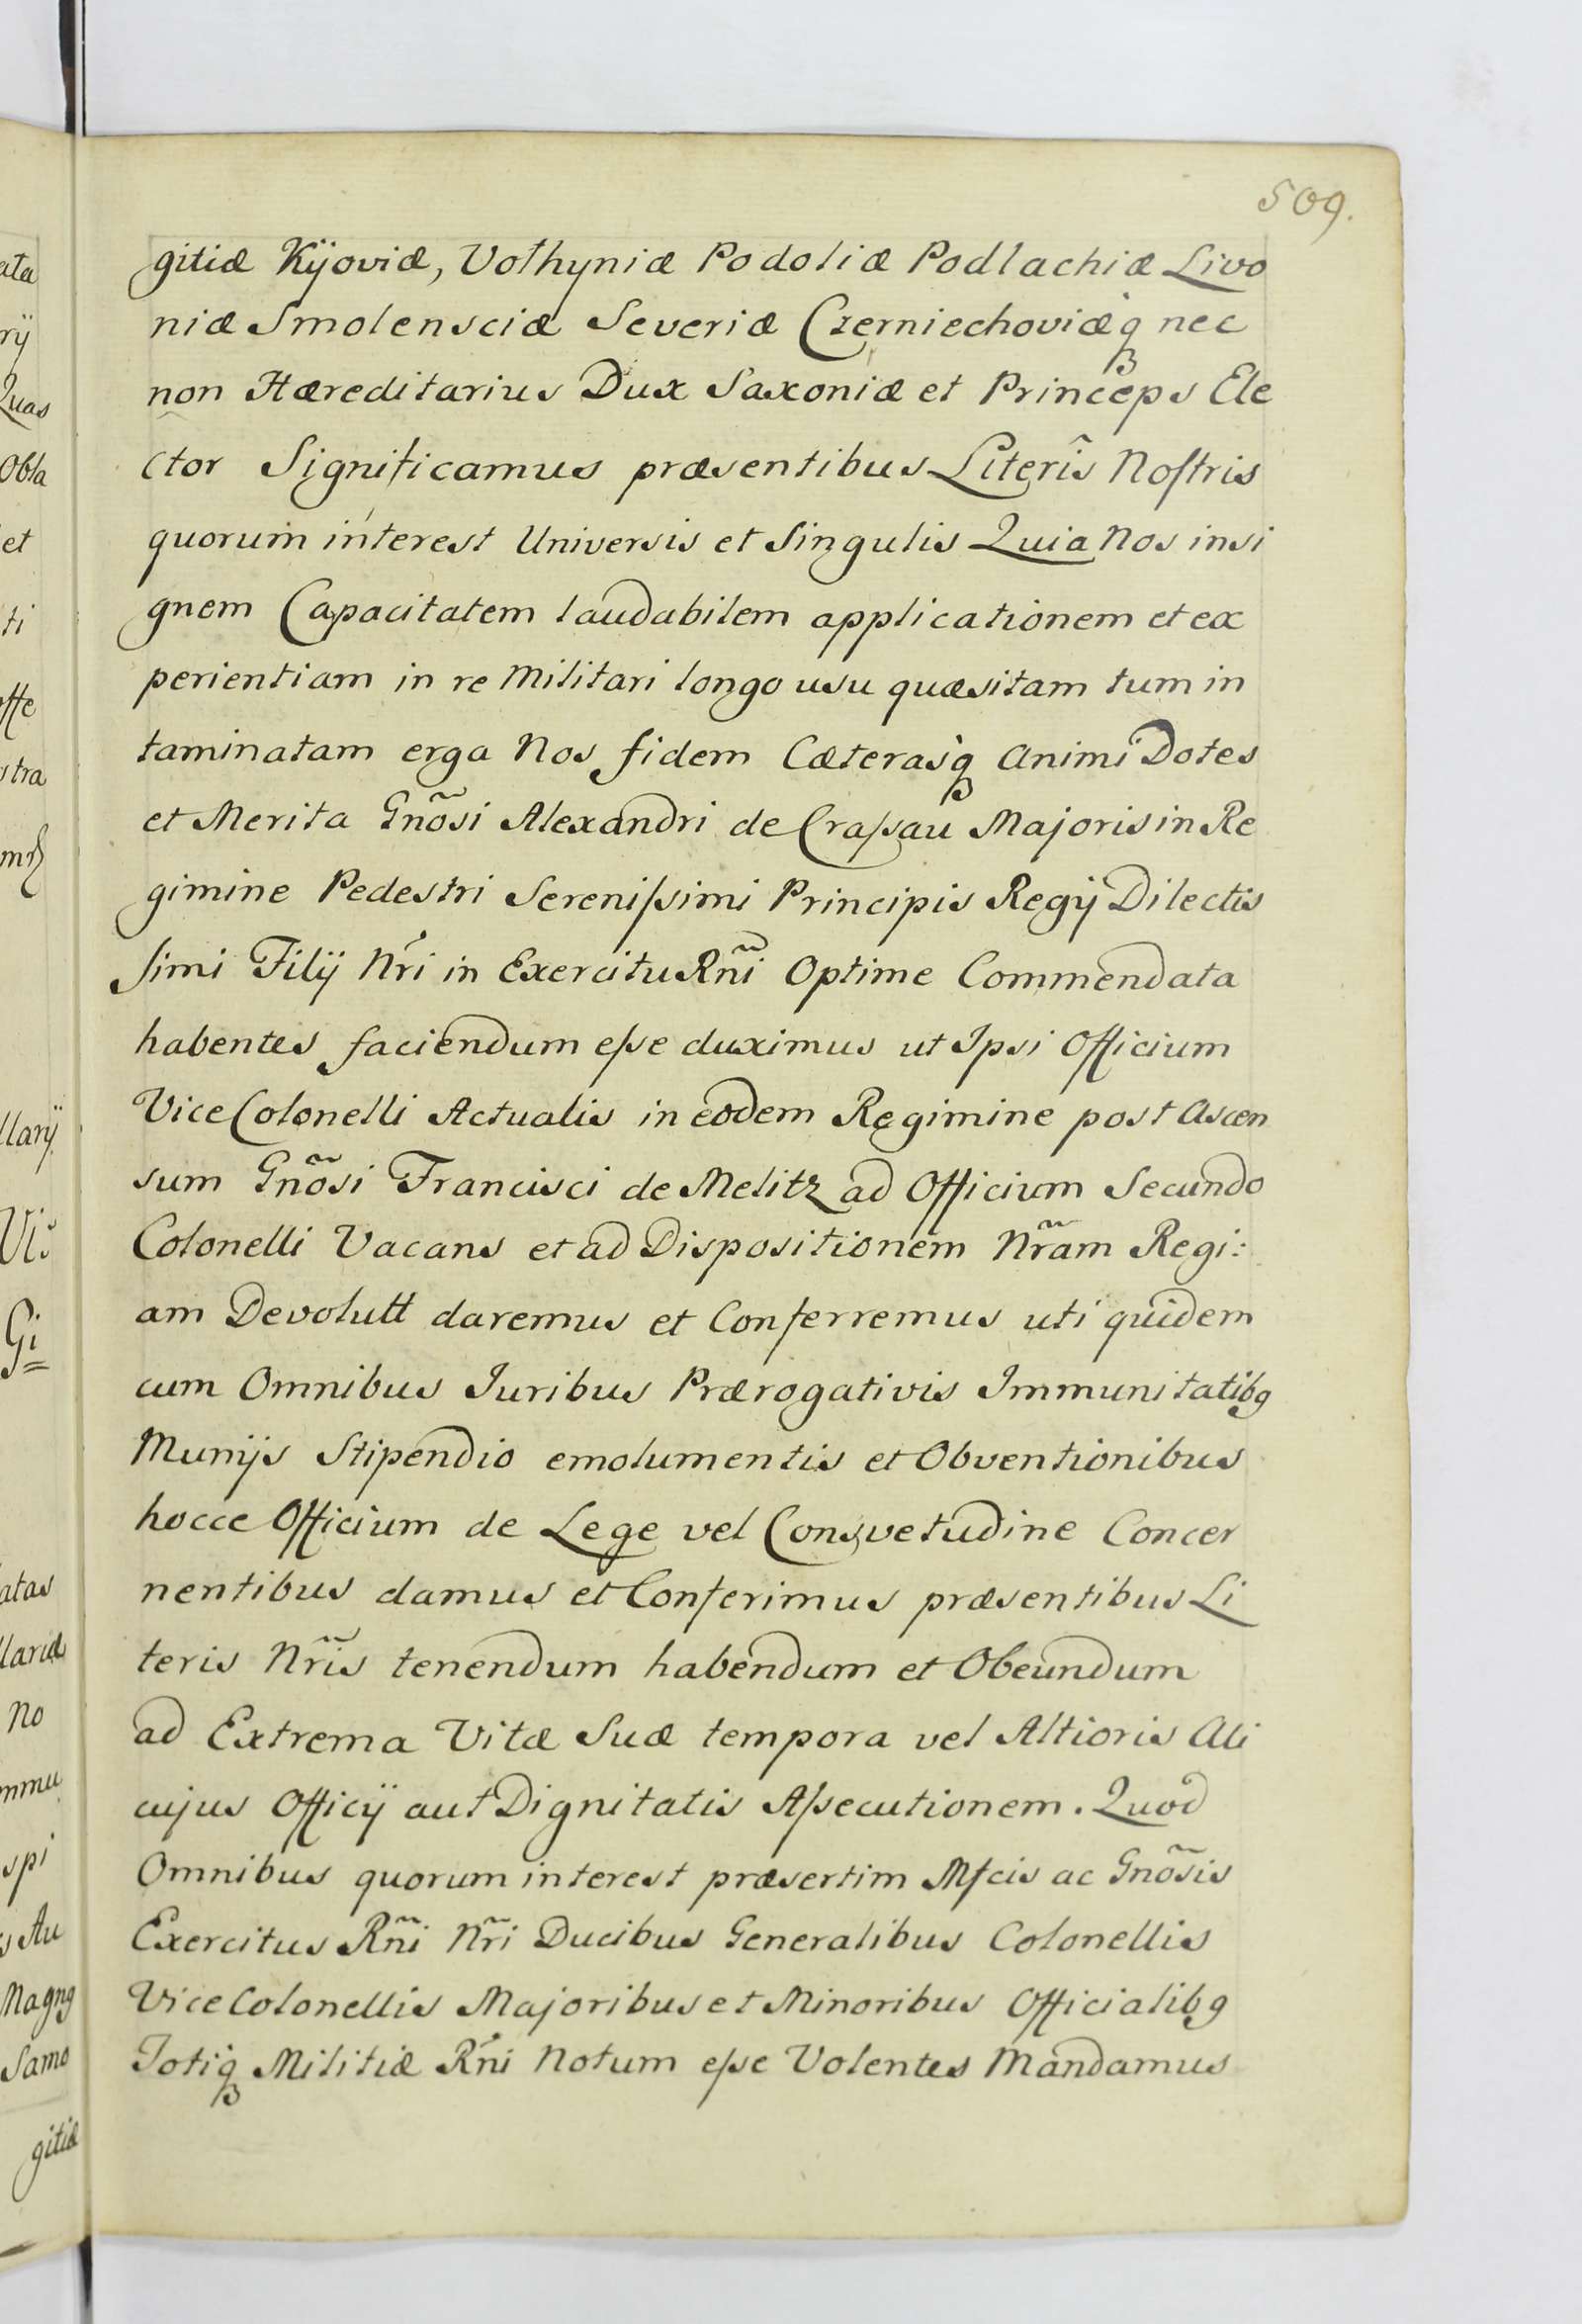 509.
gitiæ Kijoviæ, Volhyniæ Podoliæ Podlachiæ Livo
niæ Smolensciæ Severiæ Czerniechoviæq nec
non Hæreditarius Dux Saxoniæ et Princeps Ele
ctor Significamus præsentibus Literis Nostris
quorum interest Universis et Singulis Quia Nos insi
gnem Capacitatem laudabilem applicationem et ex
perientiam in re Militari longo usu quæsitam tum in
taminatam erga Nos fidem Cæterasq Animi Dotes
et Merita Gnõsi Alexandri de Crassau Majoris in Re
gimine Pedestri Serenissimi Principis Regij Dilectis
simi Filij Nri in Exercitu Rñi Optime Commendata
habentes faciendum esse duximus ut Ipsi Officium
ViceColonelli Actualis in eodem Regimine post Ascen
sum Gnõsi Francisci de Melitz ad Officium Secundo
Colonelli Vacans et ad Dispositionem Nr̃am Regi:
am Devolutt daremus et Conferremus uti quidem
cum Omnibus Juribus Prærogativis Immunitatibq
Munijs Stipendio emolumentis et Obventionibus
hocce Officium de Lege vel Consvetudine Concer
nentibus damus et Conferimus præsentibus Li
teris Nr̃is tenendum habendum et Obeundum
ad Extrema Vitæ Suæ tempora vel Altioris Ali
cujus Officÿ aut Dignitatis Assecutionem. Quod
Omnibus quorum interest præsertim Mfcis ac Gnõsis
Exercitus Rñi Nr̃i Ducibus Generalibus Colonellis
ViceColonellis Majoribus et Minoribus Officialibq
Totiq Militiæ Rni Notum esse Volentes Mandamus